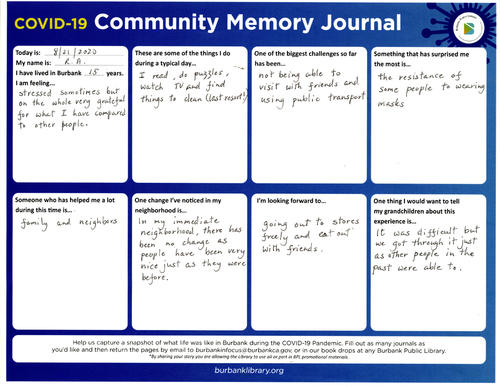 COVID-19 Community Memory Journal
Today is: 8/21/2020
My name is: R.A.
I have lived in Burbank 15 years.
I am feeling...
stressed sometimes but
on the whole very grateful
for what I have compared
to other people.
These are some of the things I do
during a typical day...
I read, do puzzles,
watch TV and find
things to clean (last resort!)
One of the biggest challenges so far
has been...
not being able to
visit with friends and
using public transport
Something that has surprised me
the most is...
the resistance of
some people to wearing
masks
Someone who has helped me a lot
during this time is...
family and neighbors
One change I've noticed in my
neighborhood is...
In my immediate
neighborhood, there has
been no change as
people have been very
nice just as they were
before.
I'm looking forward to...
going out to stores
freely and eat out
with friends.
One thing I would want to tell
my grandchildren about this
experience is...
It was difficult but
we got through it just
as other people in the
past were able to.
Help us capture a snapshot of what life was like in Burbank during the COVID-19 Pandemic. Fill out as many journals as
you'd like and then return the pages by email to burbankinfocus@burbankca.gov, or in our book drops at any Burbank Public Library.
*By sharing your story you are allowing the Library to use all or part in BPL promotional materials.
burbanklibrary.org